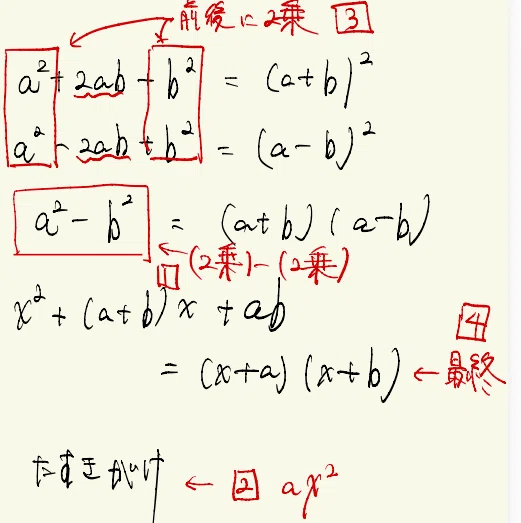 前後に2乗 3
a² + 2ab + b² = (a+b)²
a² - 2ab + b² = (a-b)²
a² - b² = (a+b)(a-b)
1 (2乗)-(2乗)
x² + (a+b)x + ab
4
= (x+a)(x+b) ← 最終
たすきがけ ← 2 ax²